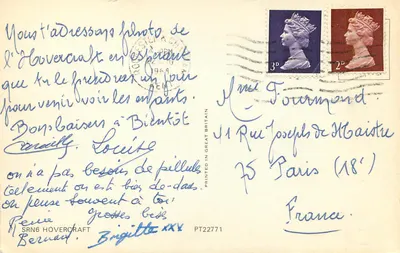 Nous t'adressons photo de
l'Hovercraft en espérant
que tu le prendras un jour
pour venir voir les enfants.
Bons baisers à Bientôt
Louise
on n'a pas besoin de pillules
tellement on est bien de-dans
on pense souvent à toi
Grosses bises
René
Bernard
Brigitte xxx
SRN6 HOVERCRAFT
PT22771
PRINTED IN GREAT BRITAIN
3D
2D
Mme Fourmond
41 Rue Joseph de Maistre
75 Paris (18e)
France